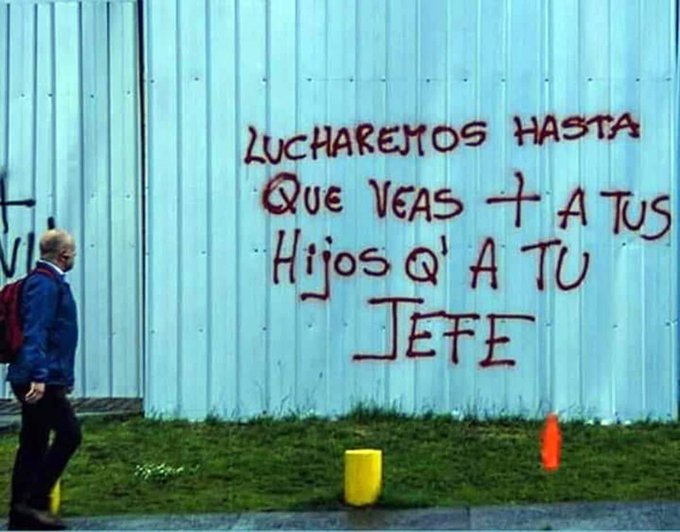 LUCHAREMOS HASTA
QUE VEAS + A TUS
HIJOS Q' A TU
JEFE